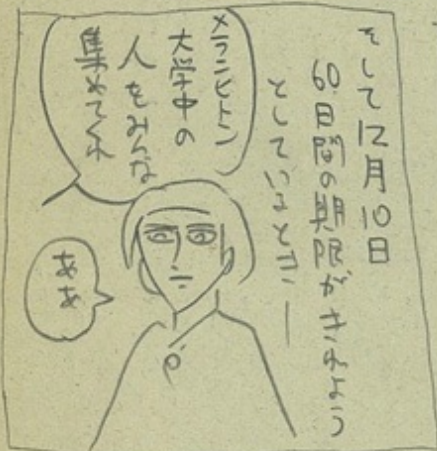 そして12月10日
60日間の期限がきれよう
としているときー
メランヒトン
大学中の
人をみんな
集めてくれ
ああ